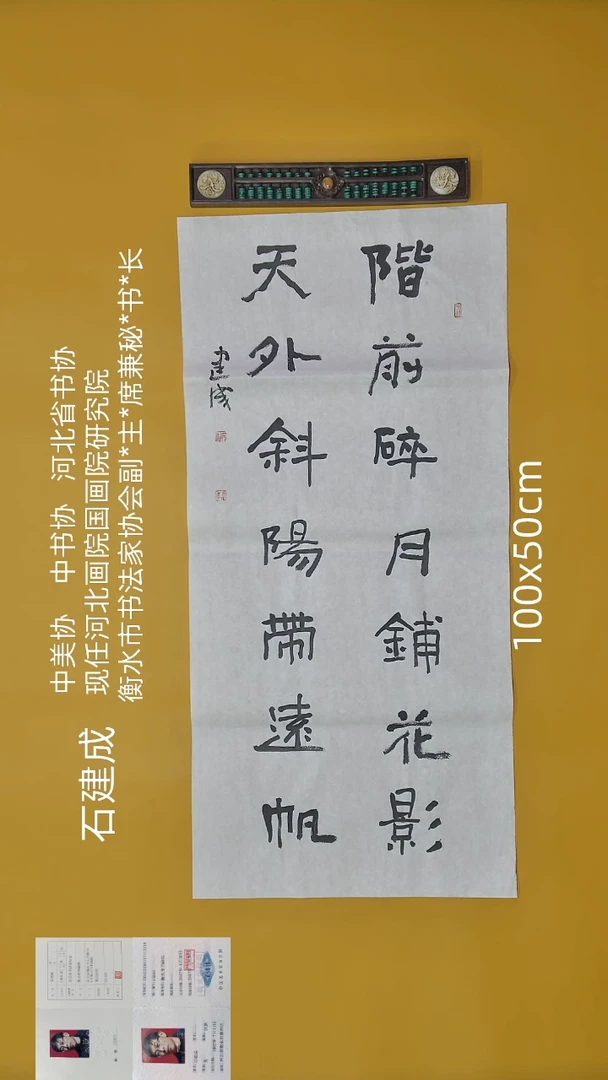 階前碎月鋪花影
天外斜陽帶遠帆
建成
石建成
中美协 中书协 河北省书协
现任河北画院国画院研究院
衡水市书法家协会副*主*席兼秘*书*长
100x50cm